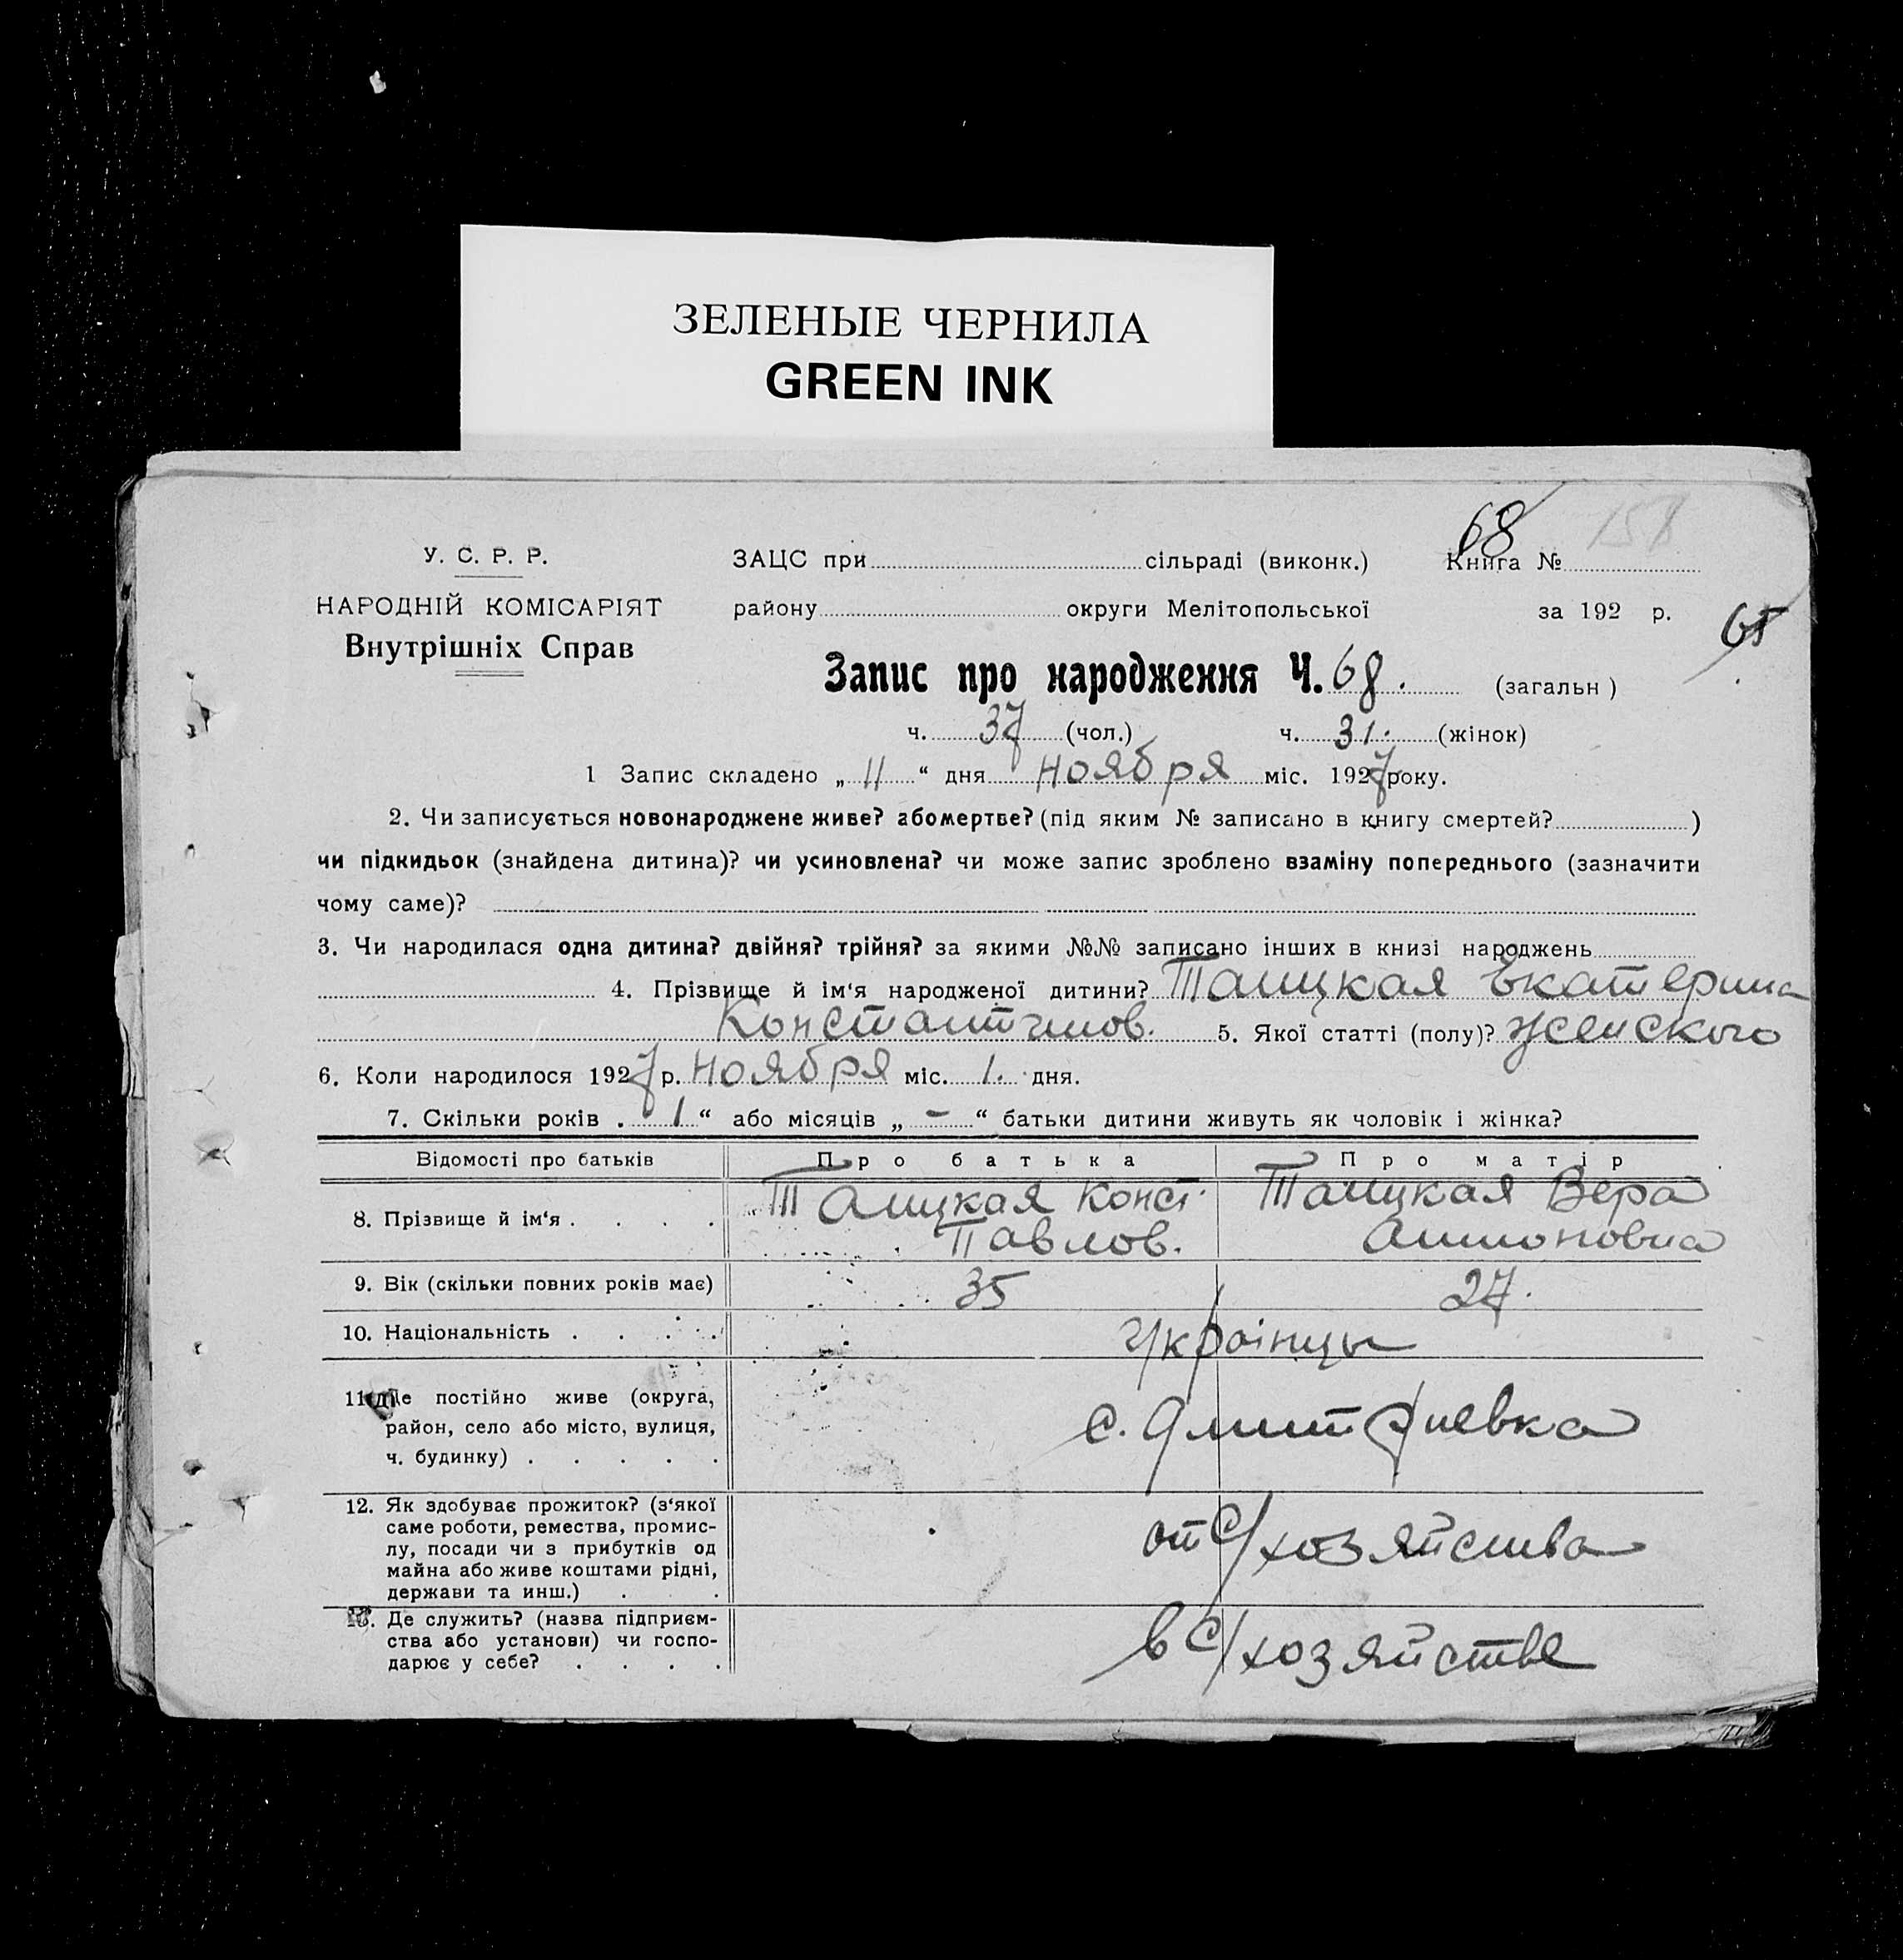 ЗЕЛЕНЫЕ ЧЕРНИЛА
GREEN INK
68 158
У. С. Р. Р. ЗАЦС при сільраді (виконк.) Книга №
НАРОДНІЙ КОМІСАРІЯТ району округи Мелітопольської за 192 р.
65
Внутрішніх Справ
Запис про народження Ч. 68. (загальн)
ч. 37 (чол.) ч. 31. (жінок)
1 Запис складено „ 11 “ дня ноября міс. 1927 року.
2. Чи записується новонароджене живе? або мертве? (під яким № записано в книгу смертей? )
чи підкидьок (знайдена дитина)? чи усиновлена? чи може запис зроблено взаміну попереднього (зазначити
чому саме)?
3. Чи народилася одна дитина? двійня? трійня? за якими №№ записано інших в книзі народжень
4. Прізвище й ім‘я народженої дитини? Таицкая Екатерина
Константинов. 5. Якої статті (полу)? женского
6. Коли народилося 1927 р. ноября міс. 1. дня.
7. Скільки років . 1 “ або місяців „ - “ батьки дитини живуть як чоловік і жінка?
Відомості про батьків Про батька Про матір
8. Прізвище й ім‘я . . . . Таицкая Конст. Таицкая Вера
Павлов.
9. Вік (скільки повних років має) 35 27.
10. Національність . . . . Українцы
11. Де постійно живе (округа,
район, село або місто, вулиця, с. Дмитриевка
ч. будинку) . . . . .
12. Як здобуває прожиток? (з‘якої
саме роботи, ремества, промис-
лу, посади чи з прибутків од от с/хозяйства
майна або живе коштами рідні,
держави та инш.) . .
13. Де служить? (назва підприєм-
ства або установи) чи госпо- в с/хозяйстве
дарює у себе? . . . .